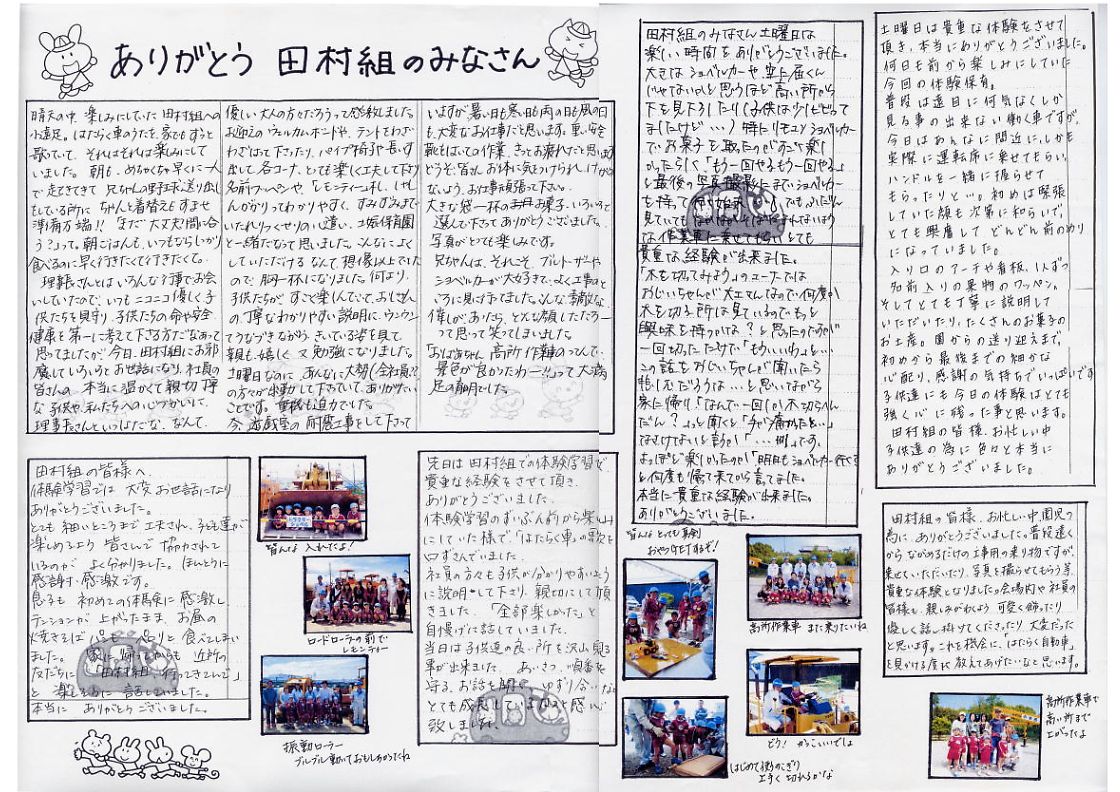 ありがとう 田村組のみなさん
晴天の中、楽しみにしていた 田村組への
小遠足。はたらく車のうたを、家でもずっと
歌っていて、それはそれは楽しみにして
いました。朝も、めちゃくちゃ早くに一人
で起きてきて
をしている所に ちゃんと着替えをすませ
準備万端!! "まだ? 大丈夫?間に合
う?"って。朝ごはんも、いつもならしっかり
食べるのに早く行きたくて行きたくて。
理事長さんとはいろんな行事でお会
いしていたので、いつもニコニコ優しく子
供たちを見守り、子供たちの命や安全、
健康を第一に考えて下さる方だなあって
思ってましたが今日、田村組にお邪
魔していろいろとお世話になり、社員の
皆さんの、本当に温かくて親切丁寧
な 子供や、私たちへの心づかいして、
理事長さんといっしょだな、なんて
優しい大人の方たちだろうって感激しました。
お迎えのウェルカムボードや、テントをわざ
わざはって下さったり、パイプ椅子や長いす
出して、名コーナー、とても楽しく工夫して下さり
名前ワッペンや、
とてもわかりやすく、すみずみまで
いたれりつくせりのお心遣い、
と一緒だなって思いました。こんなによく
していただけるなんて、想像以上でした
ので、胸一杯になりました。何より、
子供たちが、すごく楽しんでいて、おじさん
の丁寧なわかりやすい説明に、ウンウン
てうなづきながら、きいている姿を見て、
親も、嬉しく又勉強になりました。
土曜日なのに、あんなに大勢(全社員?)
の方々が出動して下さっていて、ありがたい
ことです。重機も迫力でした。
今、遊戯室の耐震工事をして下さって
いますが、暑い日も寒い日も雨の日も風の日
も、大変なお仕事だと思います。重い安全
靴もはいての作業、きっとお疲れだと思います
どうぞ皆さん、お体に気をつけられ、けが
ないよう、お仕事頑張って下さい。
大きな袋一杯のお菓子、いろいろと
選んで下さってありがとうございました。
写真がとても楽しみです。
兄ちゃんは、それこそ、ブルドーザーや
ショベルカーが大好きで、よく工事のと
ころに見に行ってました。こんな素敵な
催しがあったら、どんな顔しただろー
って思って笑ってしまいました。
「おばあちゃん、高所作業車のってんで、
景色が良かったわー!!」って大満
足の説明でした。
田村組のみなさん 土曜日は
楽しい時間をありがとうございました。
大きなショベルカーや空に届くん
じゃないかと思うほど高い所から
下を見下ろしたり(子供は少しビビって
ましたけど…) 特にリモコンショベルカー
でお菓子を取ったのがすごく楽し
かったらしく「もう一回やる もう一回やる」
と最後の写真撮影にまでショベルカー
見ていてもなかなかそばによれないよう
な作業車に乗せてもらい とても
貴重な経験が出来ました。
「木を切ってみよう」のコーナーでは
おじいちゃんが大工さんなので何度か
木を切る所は見ているのでもっと
興味を持つかな?と思ったのですが
一回切っただけで「もういいわ」と…
この話をおじいちゃんが聞いたら
悲しむだろうは…と思いながら
家に帰り「なんで一回しか木切らへん
だん?」っと聞くと「今が痛かったと…」
よっぽど楽しかったのか「明日もショベルカー行くす」
と何度も帰って来てから言ってました。
本当に貴重な経験が出来ました。
ありがとうございました。
土曜日は貴重な体験をさせて
頂き、本当にありがとうございました。
何日も前から楽しみにしていた
今回の体験保育。
普段は遠目に何気なくしか
見る事の出来ない働く車ですが、
今日はあんなに間近に、しかも
実際に運転席に乗せてもらい、
ハンドルを一緒に握らせて
もらったりと…。初めは緊張
していた顔も次第に和らいで、
とても興奮して どんどん前のめり
になっていました。
入り口のアーチや看板、1人ずつ
名前入りの果物のワッペン。
そしてとても丁寧に説明して
いただいたり、たくさんのお菓子の
お土産。園からの送り迎えまで。
初めから最後までの細かな
心配り、感謝の気持ちでいっぱいです。
子供達にも今日の体験はとても
強く心に残った事と思います。
田村組の皆様、お忙しい中
子供達の為に色々と本当に
ありがとうございました。
田村組の皆様へ、
体験学習では 大変お世話になり
ありがとうございました。
とても細いところまで工夫され、子ども達が
楽しめるよう 皆さんで協力されて
いるのが よく分かりました。ほんとうに
感謝!! 感激です。
息子も 初めての体験に 感激し、
テンションが 上がったまま、お昼の
焼きそばもペロリと 食べてしまい
ました。家に帰ってからも 近所の
友だちに「田村組 行ってきてんで」
と 楽しそうに 話していました。
本当に ありがとうございました。
先日は田村組での体験学習で
貴重な経験をさせて頂き、
ありがとうございました。
体験学習のずいぶん前から楽しみ
にしていた様で、「はたらく車」の歌を
口ずさんでいました。
社員の方々も子供が分かりやすいよう
に説明して下さり、親切にして頂
きました。「全部楽しかった」と
自慢げに話していました。
当日は子供達の良い所を沢山見る
事が出来ました。あいさつ、順番を
守る、お話を聞く、ゆずり合いなど
とても成長しているなと感心
致しました。
田村組の皆様、お忙しい中、園児の
為に、ありがとうございました。普段遠く
からながめるだけの工事用の乗り物ですが、
乗せていただいたり、写真を撮らせてもらう等、
貴重な体験となりました。会場内や社員の
皆様も、親しみがわくよう可愛く飾ったり
優しく話し掛けてくださったり 大変だった
と思います。これを機会に、「はたらく自動車」
を見かける度に教えてあげたいなと思います。
皆んな 入れたよ!
ロードローラの前で
レモンティー
振動ローラー
ブルブル動いておもしろかったね
皆んなとっても真剣
おやつを釘打するぞ!
高所作業車 また乗りたいね
どう! かっこいいでしょ
はじめて使うのこぎり
上手く切れるかな
高所作業車で
高い所まで
上がったよ